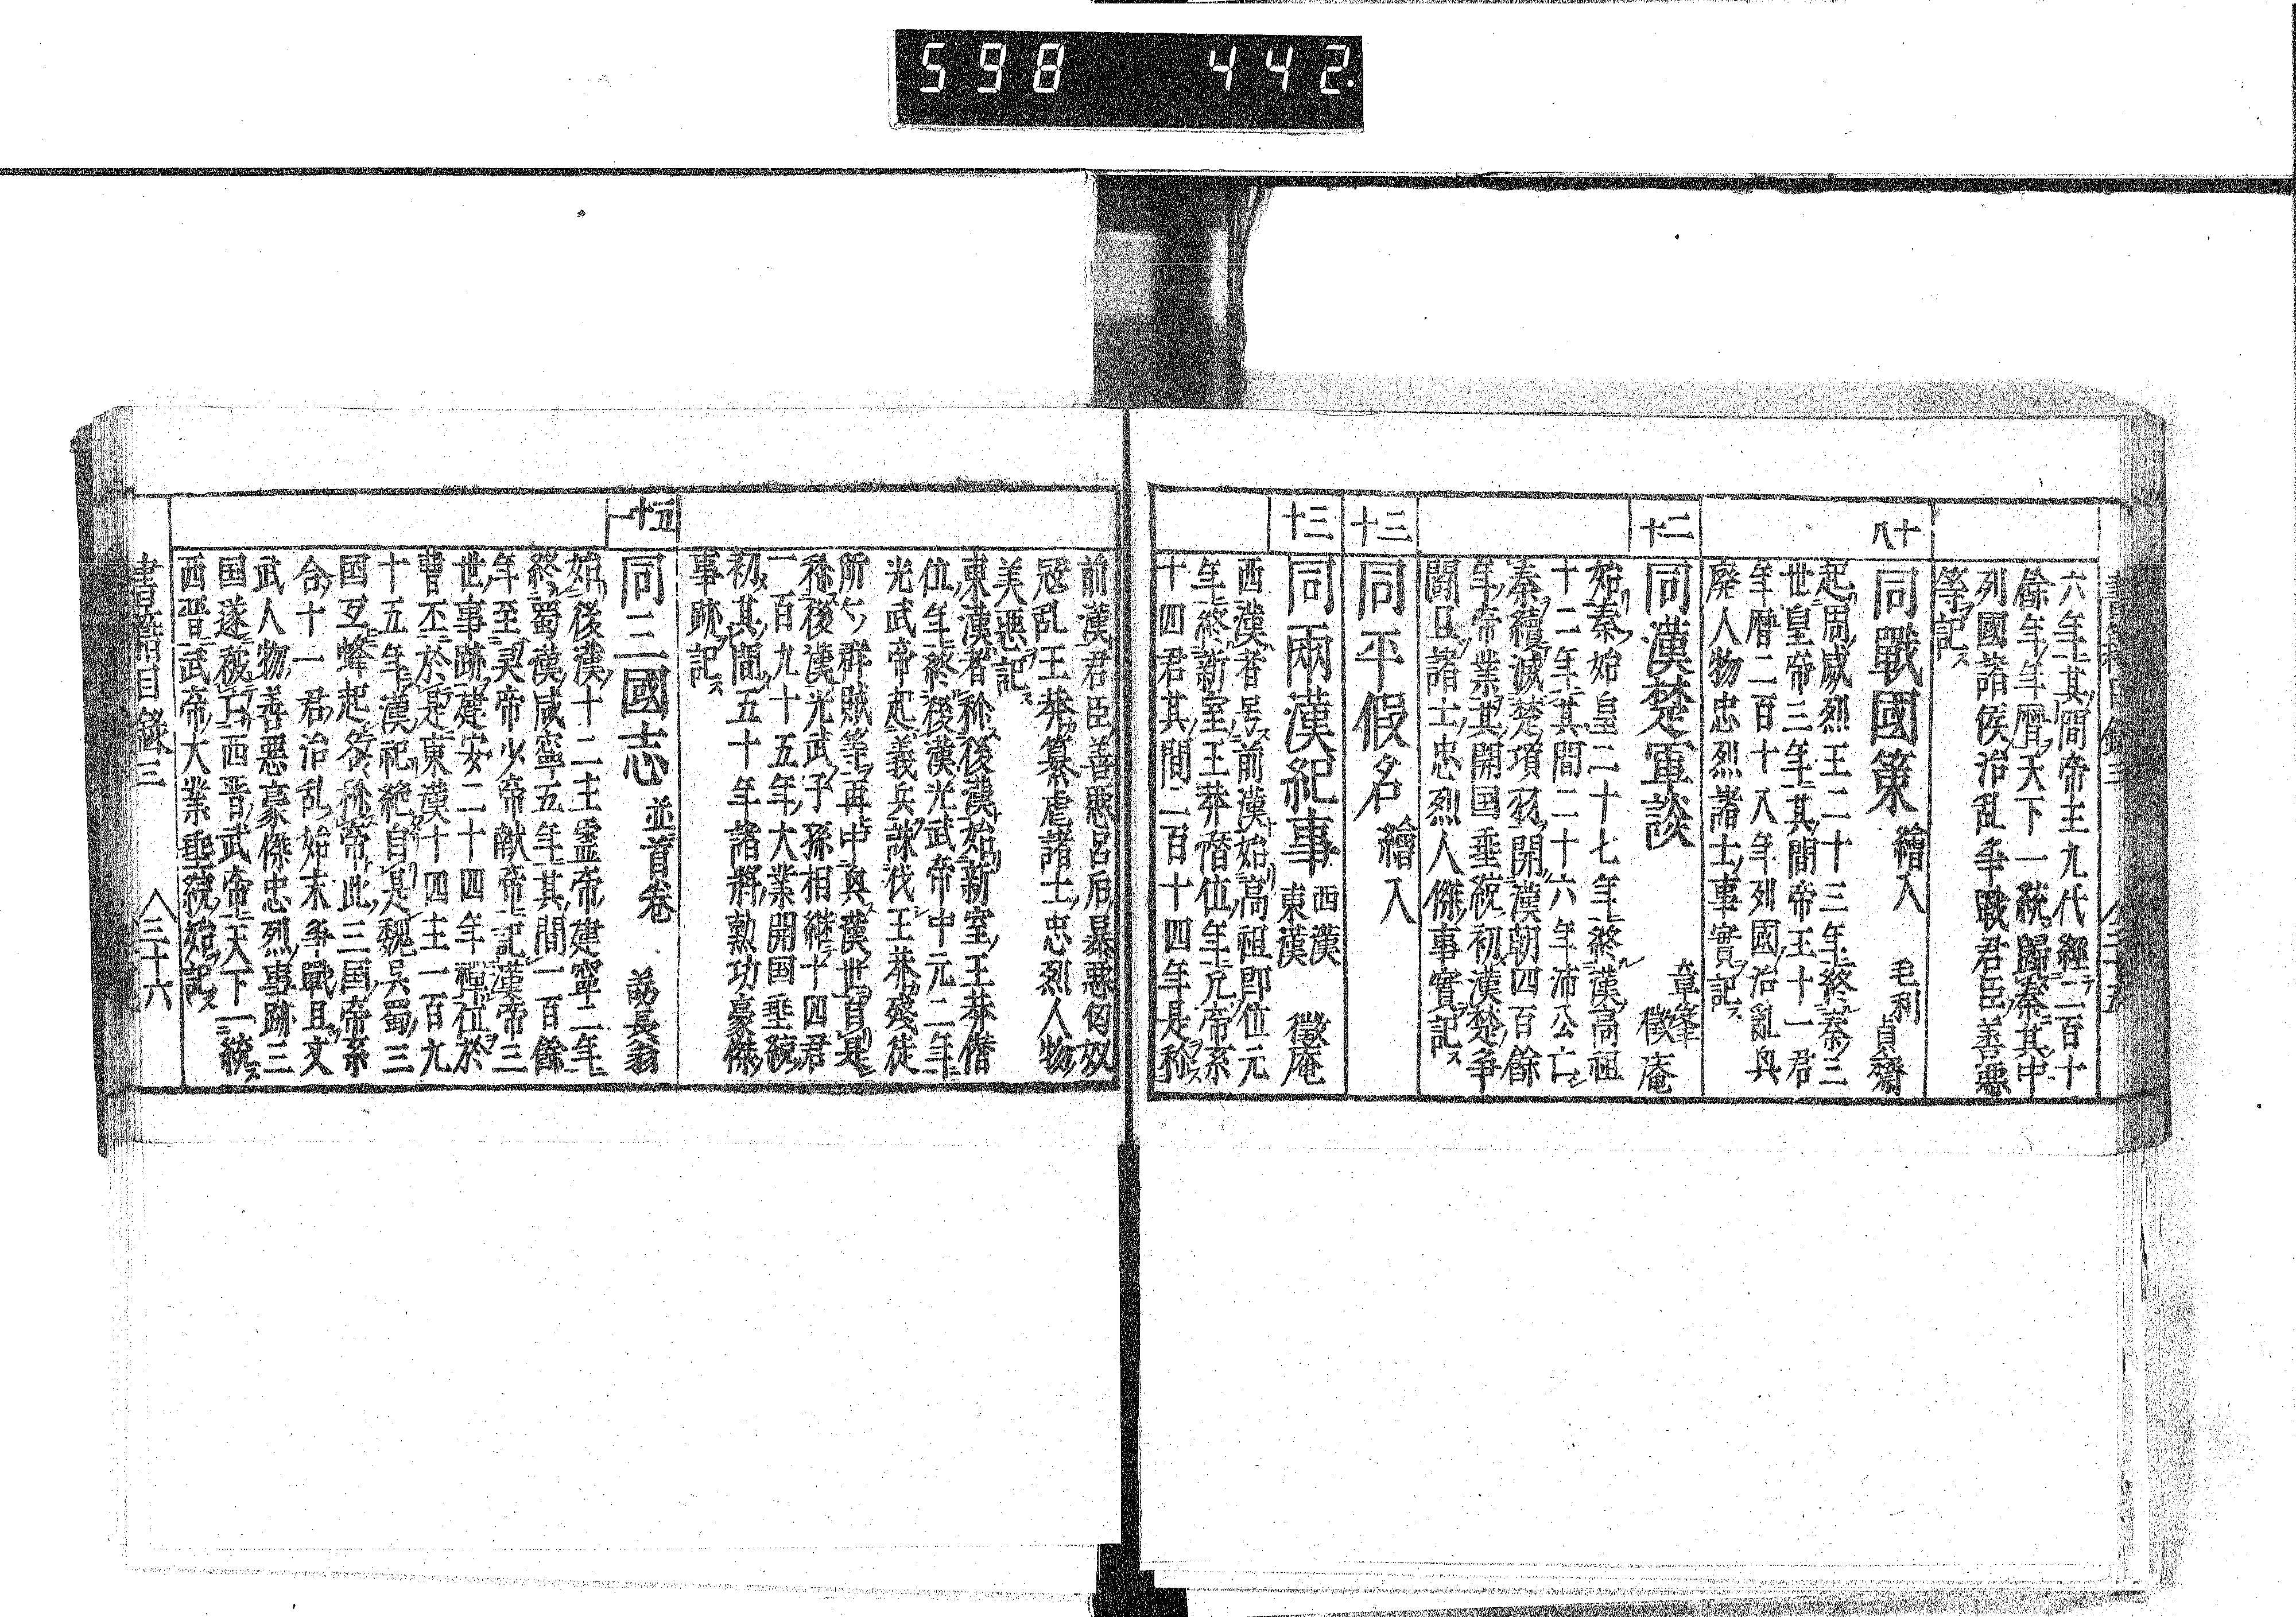 598 442.
書籍目録三
六年其間帝王九代經二百十
餘年年曆天下一統歸秦其中
列國諸侯治乱爭戰君臣善惡
等記ス
十八
同戰國策 繪入 毛利貞齋
起周威烈王二十三年終秦三
世皇帝三年其間帝王十一君
年曆二百十八年列國治亂與
廃人物忠烈諸士事實記ス
二十
同漢楚軍談 章峯 徽庵
始秦始皇二十七年終漢高祖
十二年其間二十六年沛公亡
秦續滅楚項羽開漢朝四百餘
年帝業其開国垂統初漢楚爭
闘且諸士忠烈人傑事實記ス
三十
同平假名 繪入
三十
同兩漢紀事 西漢 東漢 徽庵
西漢者号前漢始高祖即位元
年終新室王莽僭位年凡帝系
十四君其間二百十四年是称ス
前漢君臣善惡呂后暴惡匈奴
冦乱王莽簒虐諸士忠烈人物
美惡記ス
東漢者称後漢始新室王莽僭
位年終後漢光武帝中元二年
光武帝起義兵誅伐王莽殘徒
所々群賊等再中興漢世自是
称後漢光武子孫相継十四君
一百九十五年大業開国埀統
初其間五十年諸將勲功豪傑
事跡記ス
五十一
同三國志 並首卷 訥長翁
始後漢十二主霊帝建寧二年
終蜀漢咸寧五年其間一百餘
年至灵帝少帝献帝記漢帝三
世事跡建安二十四年禪位於
曹丕於是東漢十四主一百九
十五年漢祀絶自是魏呉蜀三
国互蜂起各称帝此三国帝系
合十一君治乱始末爭戰且文
武人物善惡豪傑忠烈事跡三
国遂被亡西晋武帝天下一統ス
西晋武帝大業垂統始記ス
書籍目録三 三十六